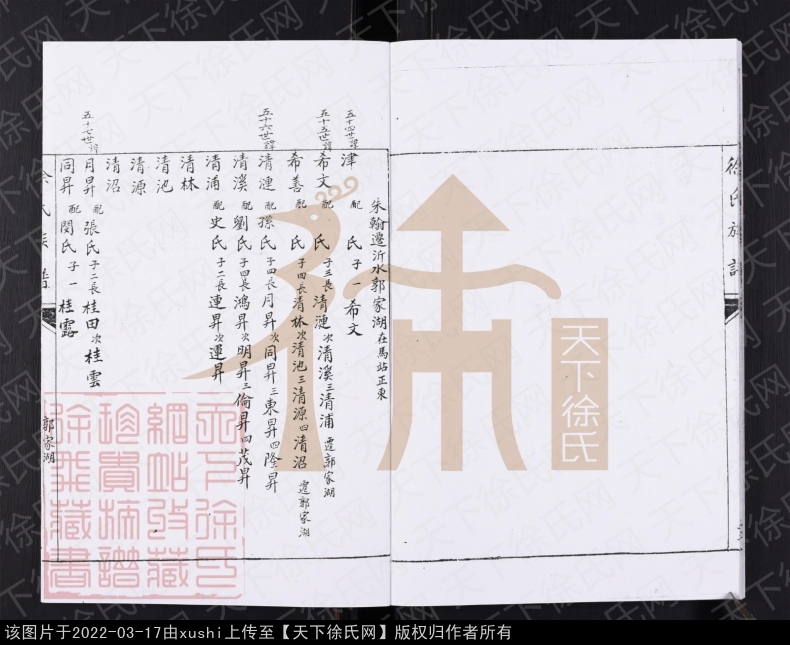 徐氏族譜
朱翰遷沂水郭家湖在馬站正東
五十四世譯 津 配 氏 子一希文
五十五世譯 希文 配 氏 子三長清漣次清溪三清浦 遷郭家湖
希善 配 氏 子四長清林次清池三清源四清沼 遷郭家湖
五十六世譯 清漣 配孫氏 子四長月昇次同昇三東昇四陰昇
清溪 配劉氏 子四長鴻昇次明昇三倫昇四茂昇
清浦 配史氏 子二長連昇次運昇
清林
清池
清源
清沼
五十七世譯 月昇 配張氏 子二長桂田次桂雲
同昇 配閔氏 子一桂露
徐氏族譜
郭家湖
天下徐氏
天下徐氏网
该图片于2022-03-17由xushi上传至【天下徐氏网】版权归作者所有